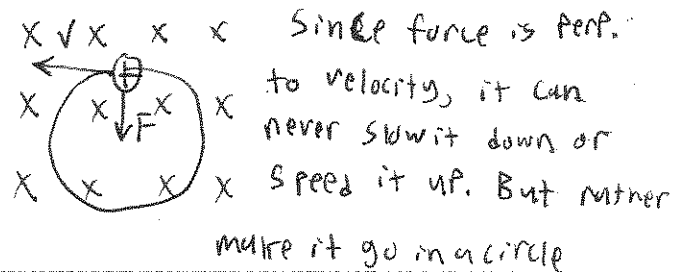 X V X X X Since force is perp.
+ to velocity, it can
X X X X F never slow it down or
X X X X speed it up. But rather
make it go in a circle